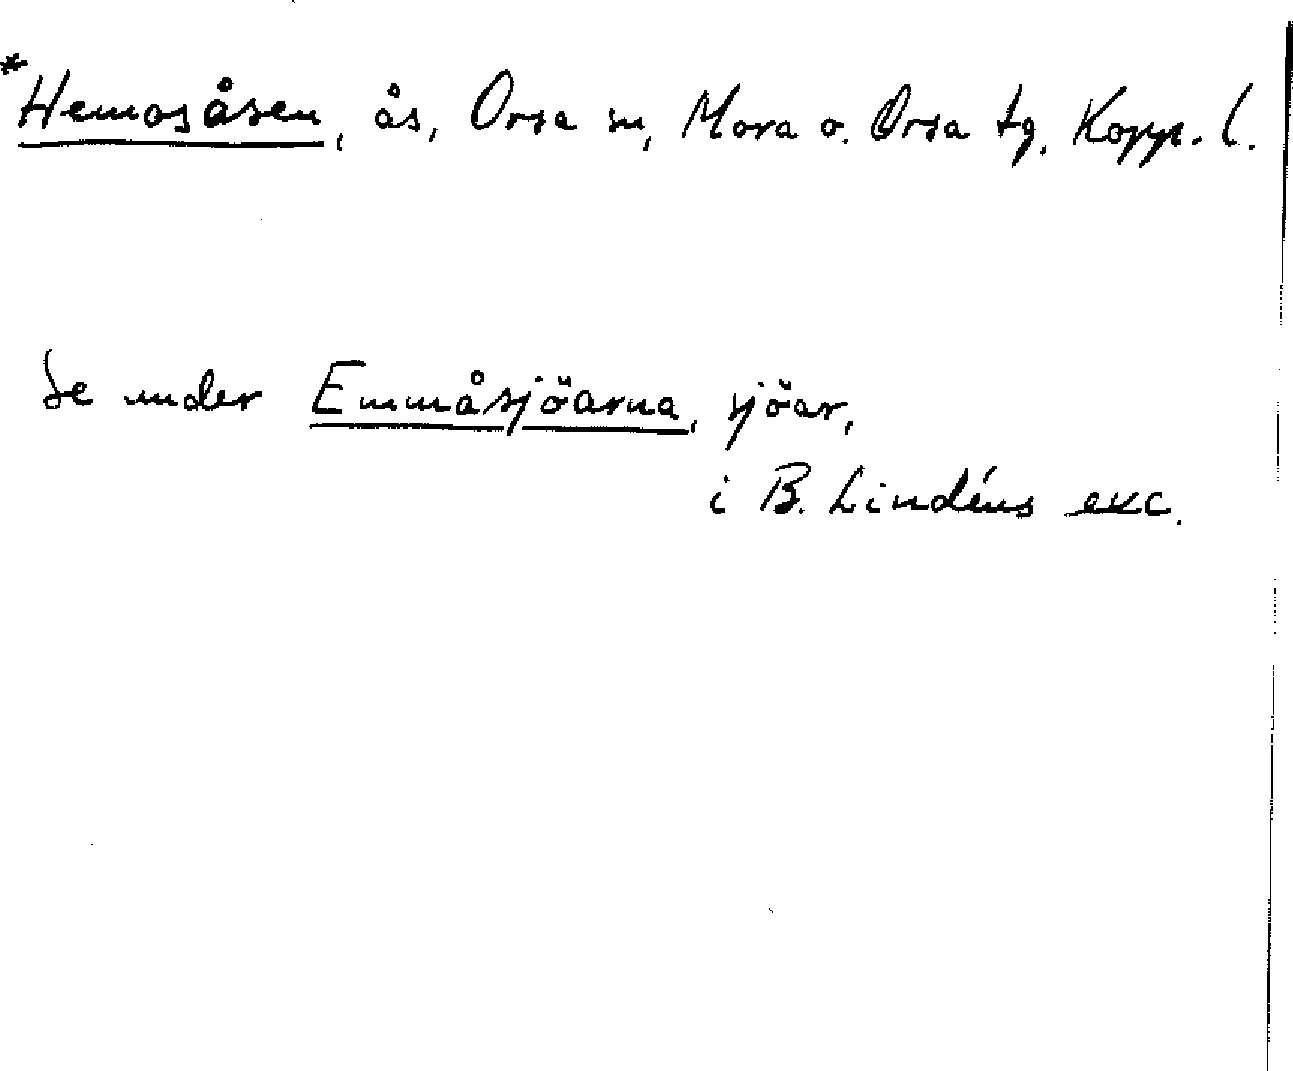 *Hemosåsen, ås, Orsa sn, Mora o. Orsa tg. Kopp. l.
Se under Emmåsjöarna, sjöar,
i B. Lindéns exc.